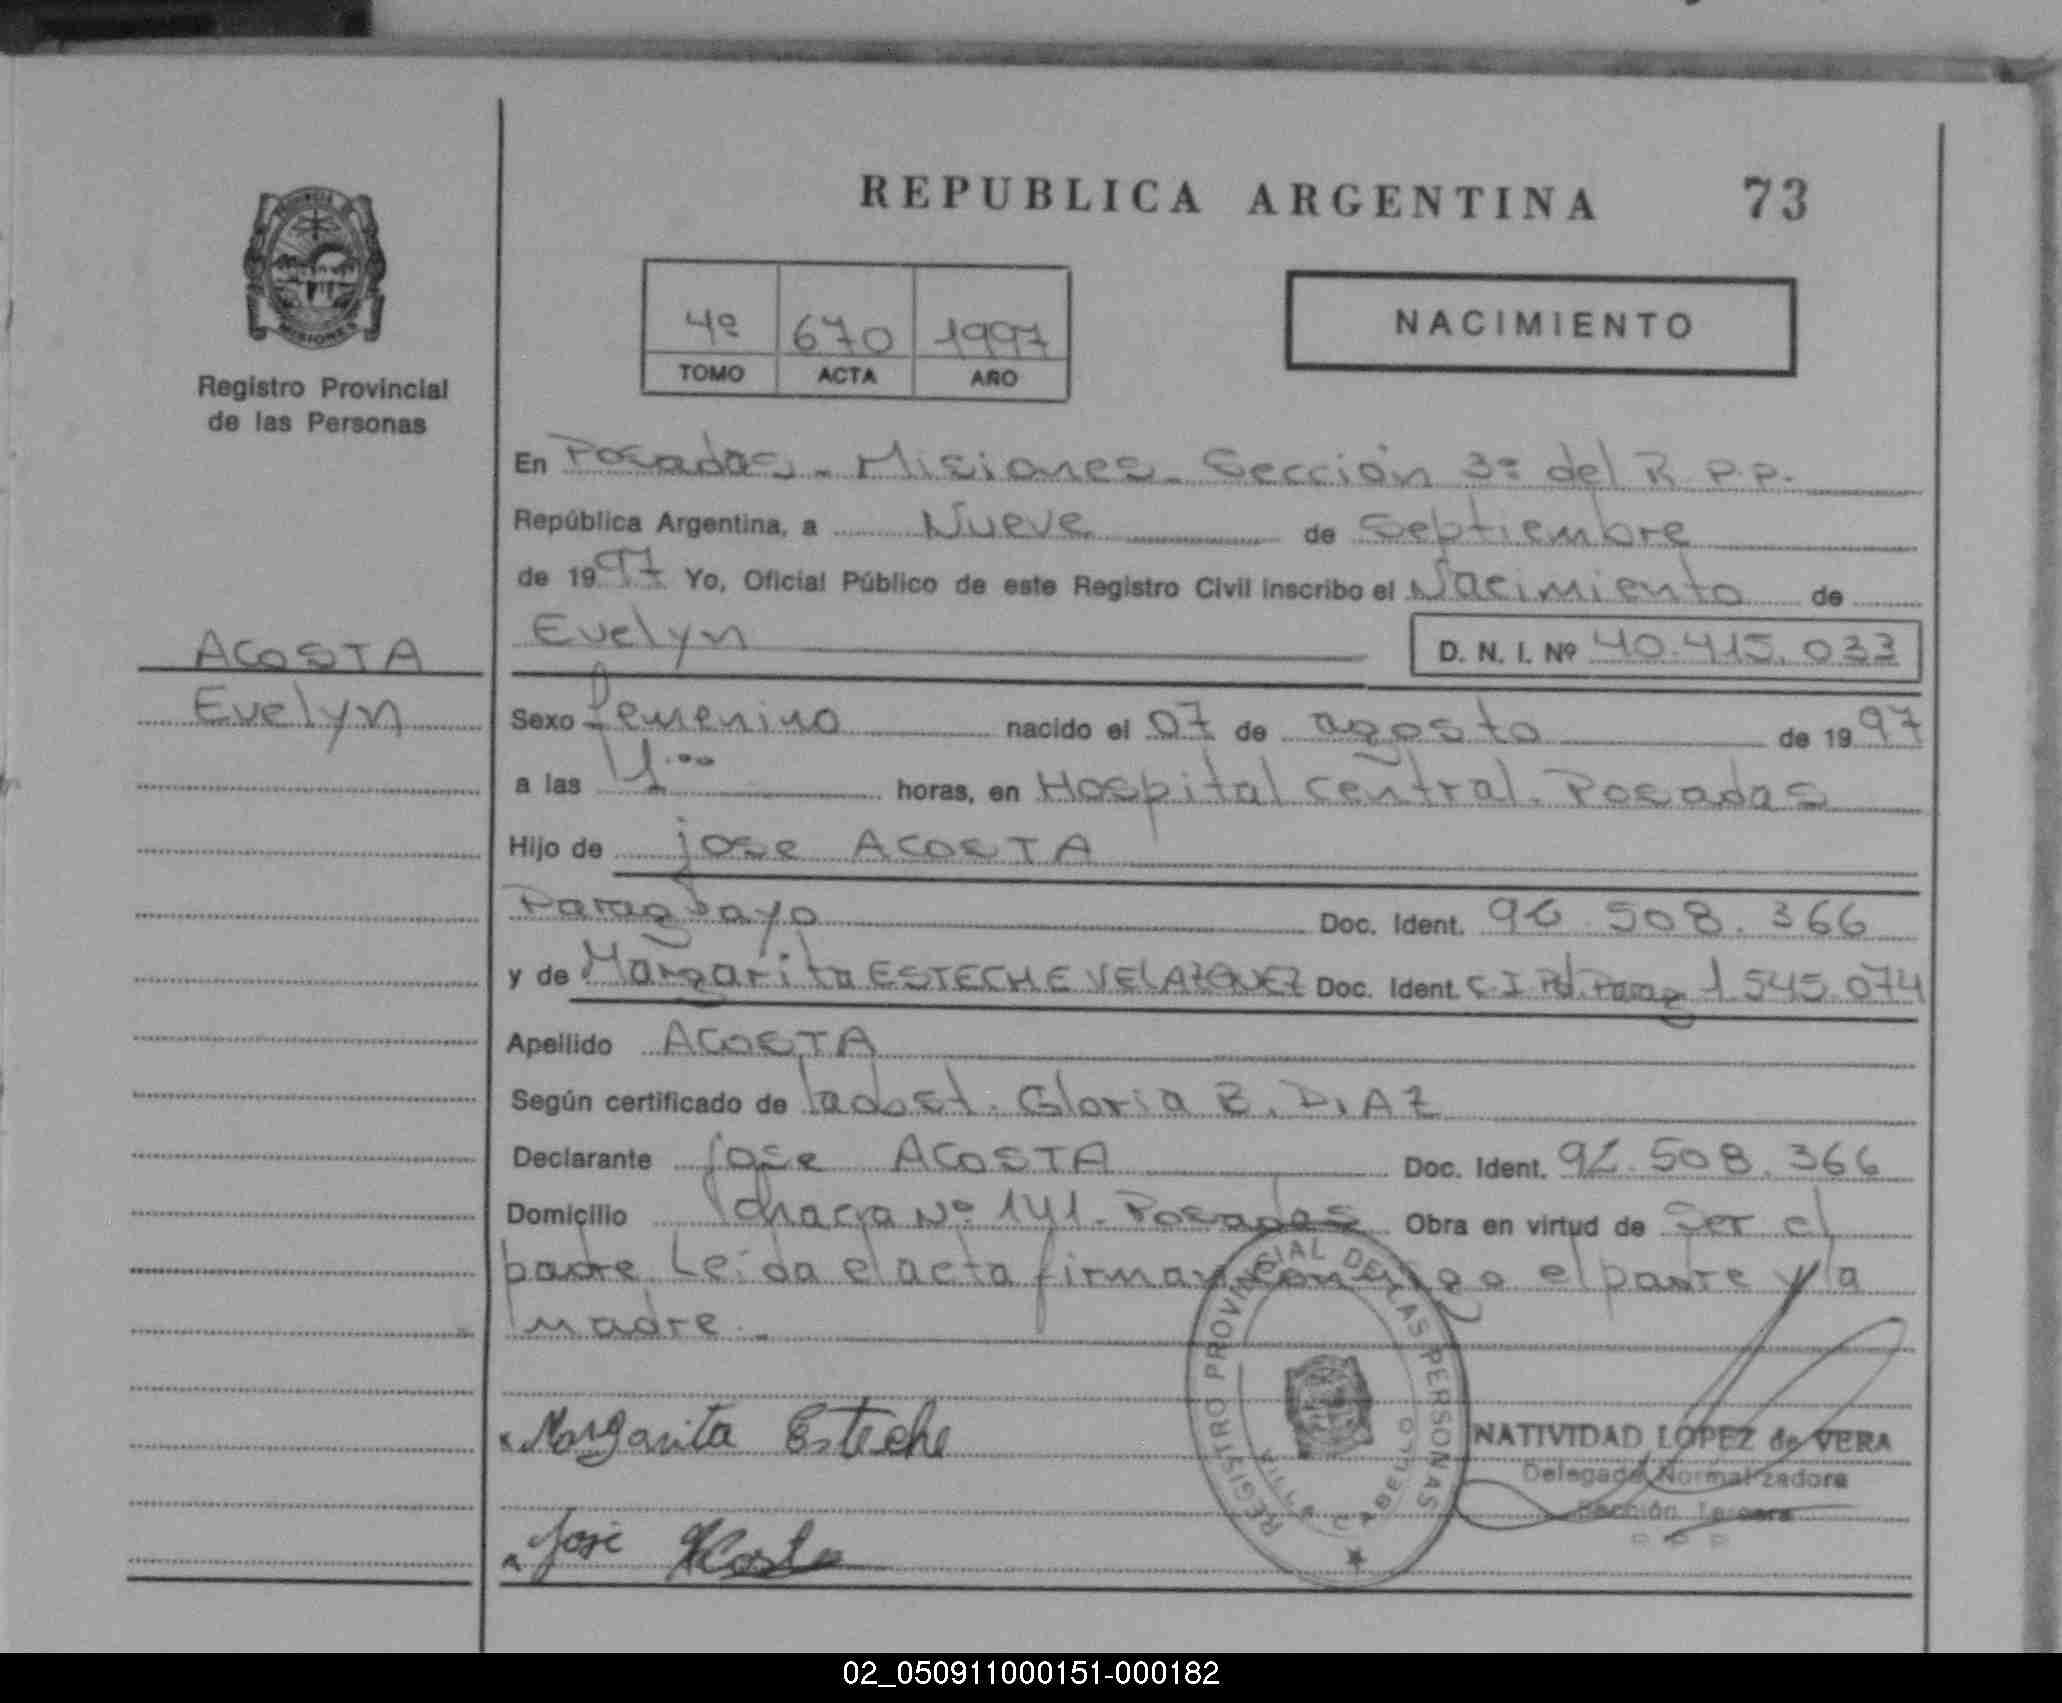 REPUBLICA ARGENTINA 73
Registro Provincial
de las Personas
MISIONES
4º 670 1997
TOMO ACTA AÑO
NACIMIENTO
En Posadas - Misiones - Sección 3º del R.P.P.
República Argentina, a Nueve de Septiembre
de 1997 Yo, Oficial Público de este Registro Civil inscribo el Nacimiento de
ACOSTA
Evelyn
Evelyn D. N. I. Nº 40.415.033
Sexo femenino nacido el 07 de agosto de 1997
a las horas, en Hospital Central. Posadas
Hijo de jose ACOSTA
Paraguayo Doc. Ident. 92.508.366
y de Margarita ESTECHE VELAZQUEZ Doc. Ident. C I Pol. Parag 1.545.074
Apellido ACOSTA
Según certificado de Gloria B. DIAZ
Declarante jose ACOSTA Doc. Ident. 92.508.366
Domicilio chacra Nº 141 - Posadas Obra en virtud de ser el
padre. Leída el acta firman conmigo el padre y la
madre.
REGISTRO PROVINCIAL DE LAS PERSONAS
Margarita Esteche
NATIVIDAD LOPEZ de VERA
Delegada Normalizadora
Sección Tercera
José Acosta
02_050911000151-000182